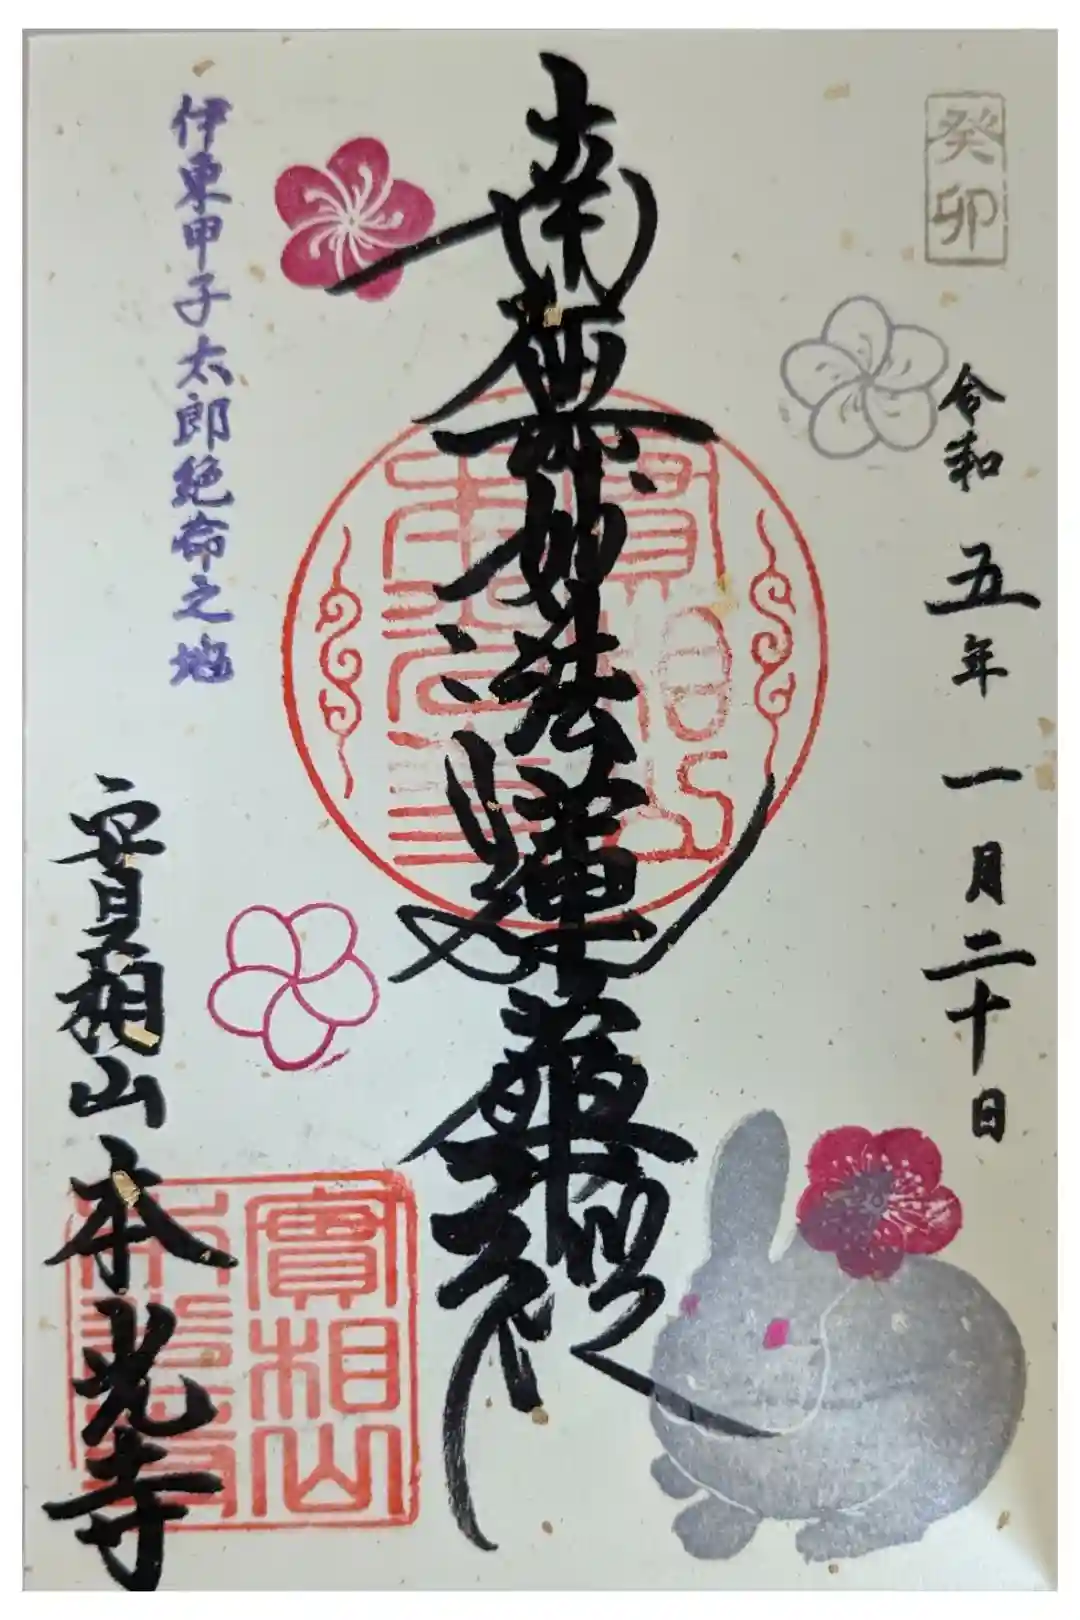 癸卯
令和五年一月二十日
南無妙法蓮華経
伊東甲子太郎絶命之地
實相山
本光寺
實相山
本光寺
實相山
本光寺